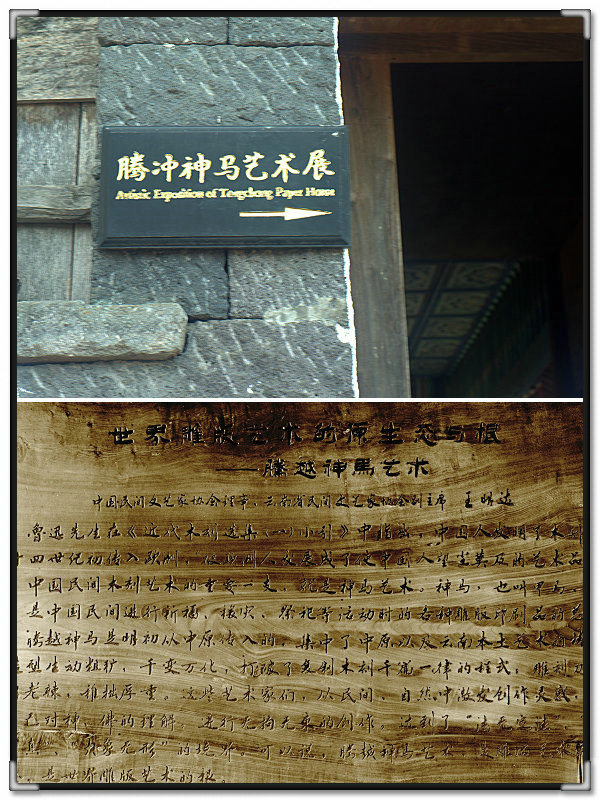 腾冲神马艺术展
Artistic Exposition of Tengchong Paper Horse
世界雕版艺术的原生态与根
——腾越神马艺术
中国民间文艺家协会理事、云南省民间文艺家协会副主席 王明达
鲁迅先生在《近代木刻选集(一)小引》中指出,中国人发明了木刻
四世纪初传入欧洲,
中国民间木刻艺术的重要一支,就是神马艺术。神马,也叫甲马,
是中国民间进行祈福、禳灾、祭祀等活动时的各种雕版印刷品的总
腾越神马是明初从中原传入的,集中了中原以及云南本土艺术
造型生动粗犷,千变万化,打破了复制木刻千篇一律的程式,雕刻
老辣,稚拙厚重。这些艺术家们,从民间、自然中激发创作灵感,
对神、佛的理解,进行无拘无束的创作,达到了“法无定法”
“象无形”的境界。可以说,腾越神马艺术,是雕版艺术
,是世界雕版艺术的根。